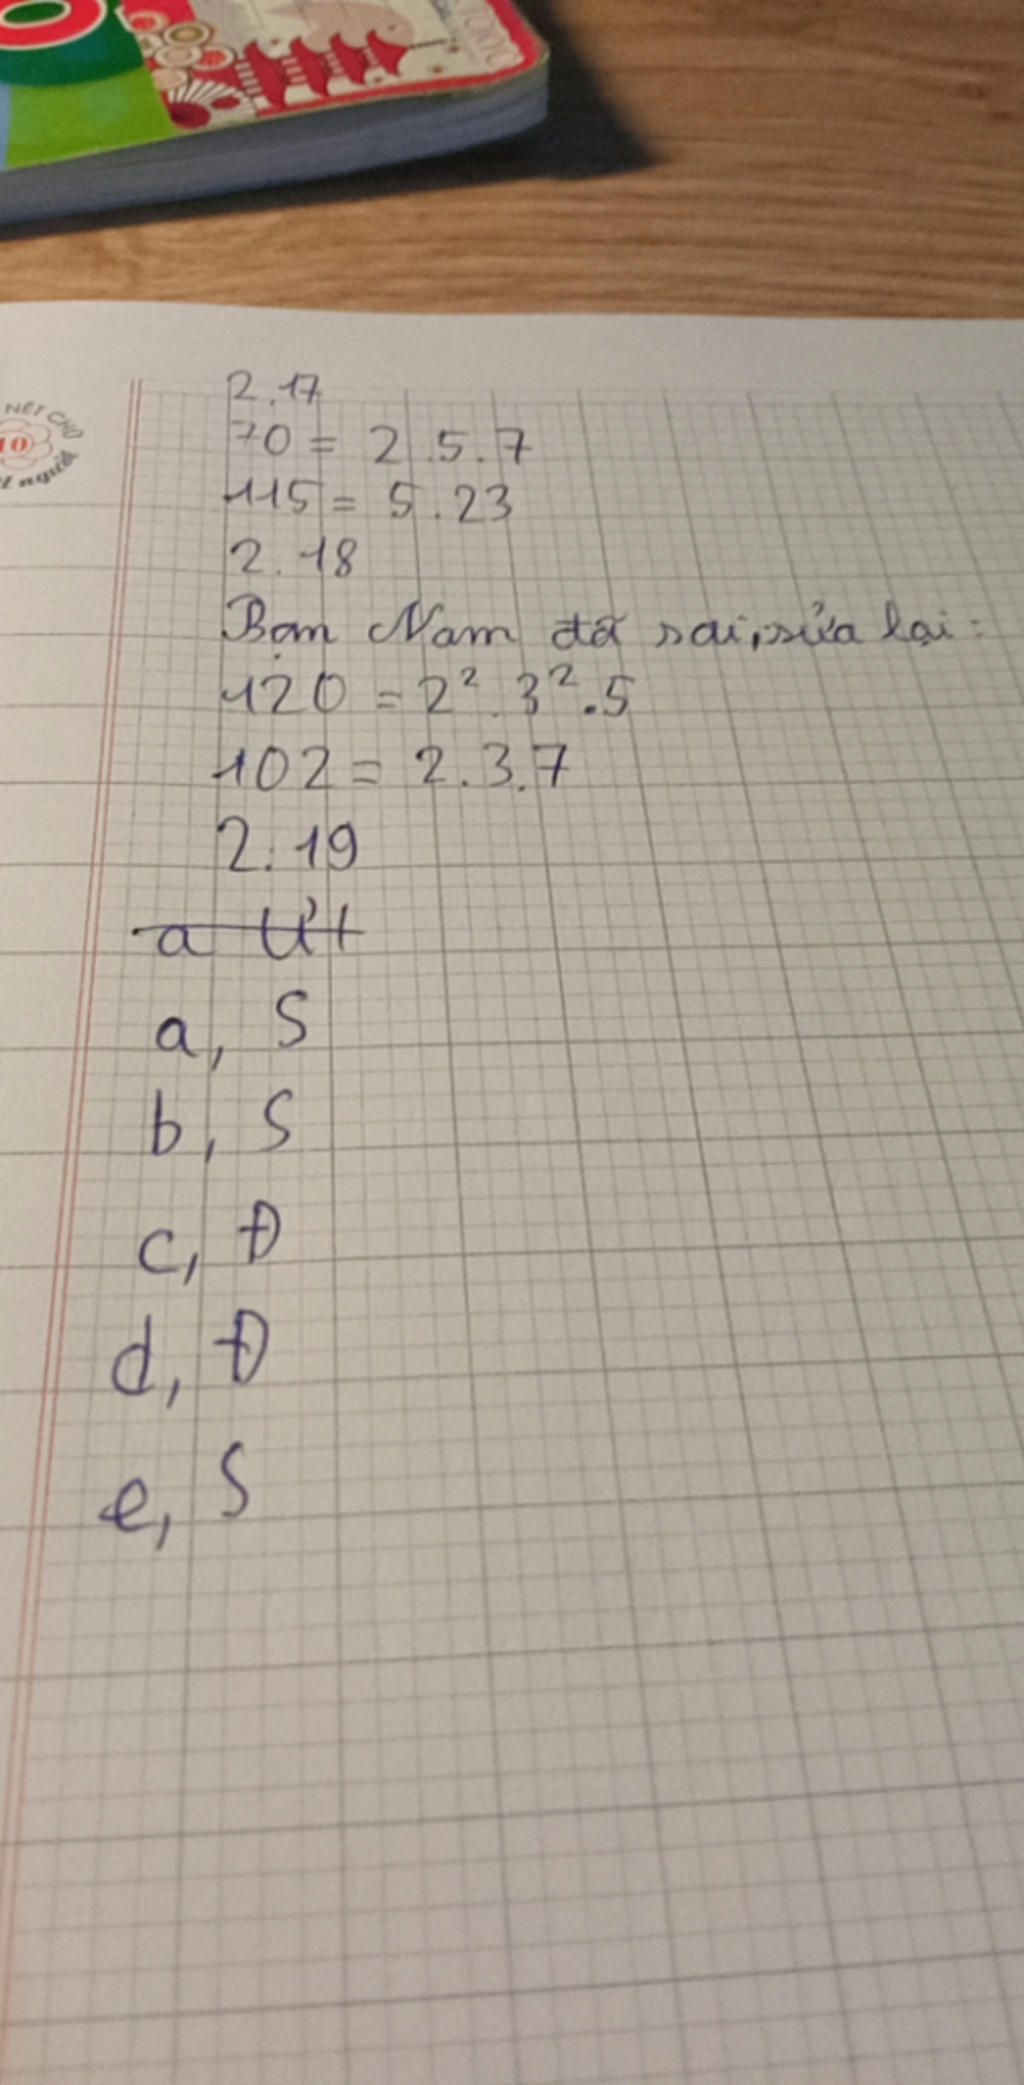 NÉT CHỮ
10
2.17
70 = 2.5.7
115 = 5.23
2.18
Bạn Nam đã sai, sửa lại:
120 = 2².3².5
102 = 2.3.7
2.19
a ƯI
a, S
b, S
c, Đ
d, Đ
e, S